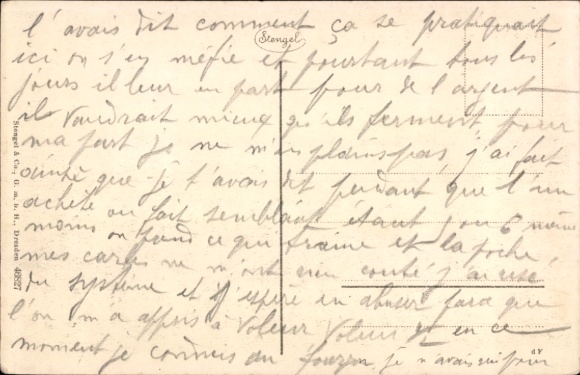 t'avais dit comment ça se pratiquait
Stengel
ici on s'en méfie et pourtant tous les
jours il leur en part pour de l'argent
il vaudrait mieux qu'ils ferment pour
ma part je ne m'en plains pas, j'ai fait
ainsi que je t'avais dit pendant que l'un
achète ou fait semblant étant 5 ou 6 même
moins on fend ce qui traine et la poche,
mes cartes ne m'ont rien couté j'ai usé
du système et j'espère en abuser parce que
l'on m'a appris à voleur voleur et en ce
moment je connais du je n'avais
Stengel & Co., G. m. b. H., Dresden 46827